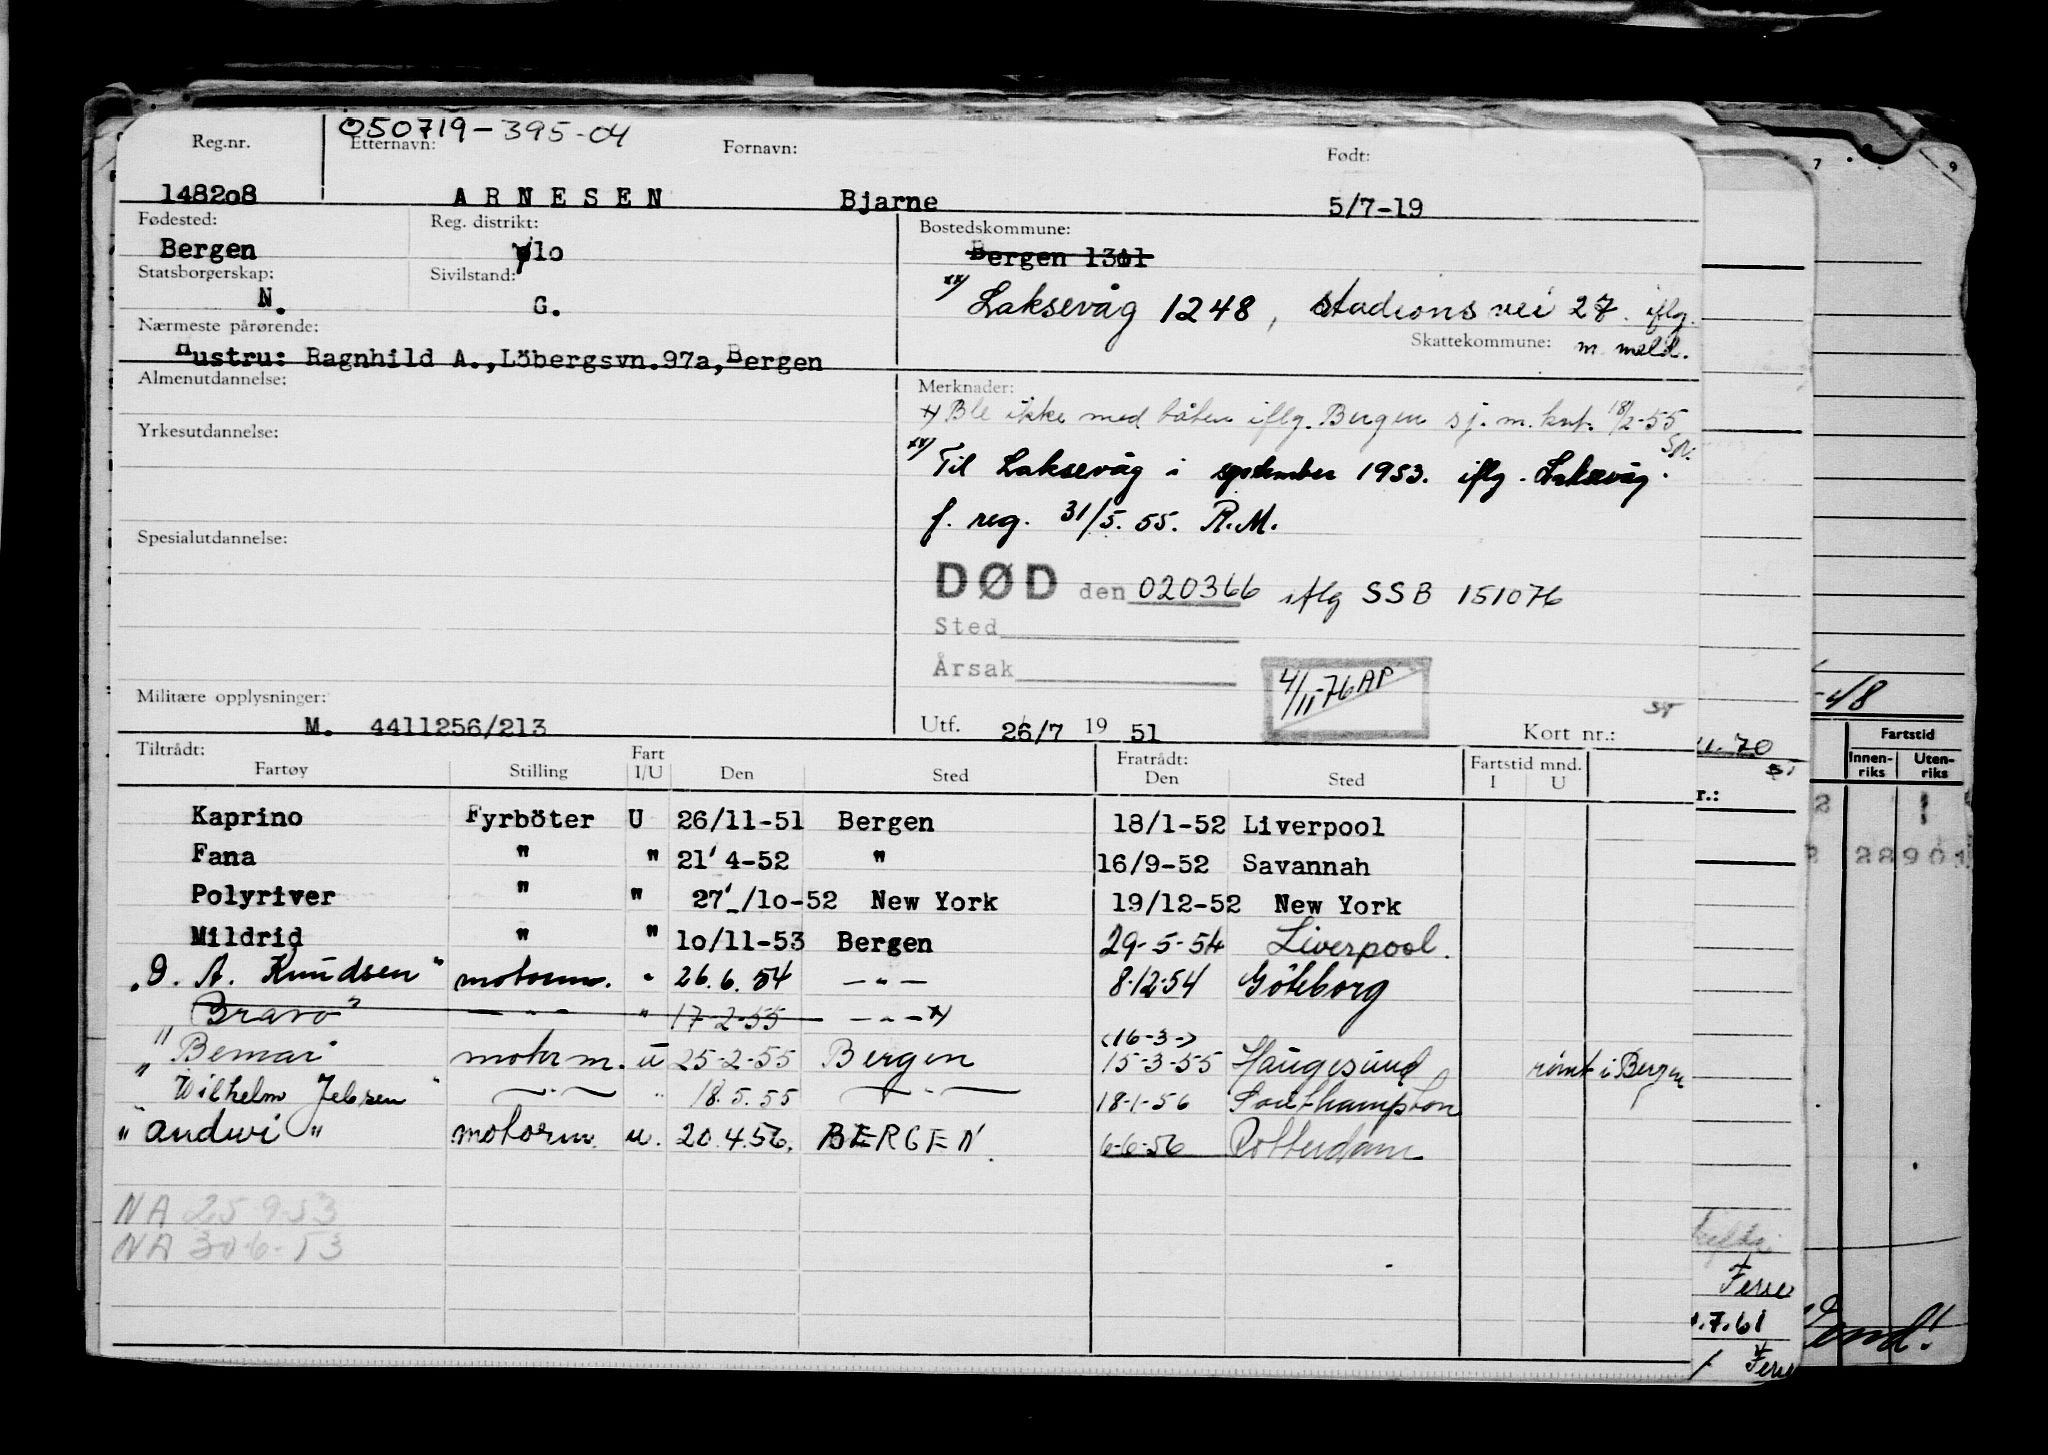 050719-395-04
Reg.nr. Etternavn: Fornavn: Født:
148208 ARNESEN Bjarne 5/7-19
Fødested: Reg. distrikt: Bostedskommune:
Bergen lo Bergen 1301
Statsborgerskap: Sivilstand:
N. G. xx) Laksevåg 1248, Stadionsvei 27. iflg.
Nærmeste pårørende: Skattekommune: m. meld.
Hustru: Ragnhild A.,Löbergsvn.97a,Bergen
Almenutdannelse: Merknader:
x) Ble ikke med båten iflg. Bergen sj.m.knt. 18/2-55
Yrkesutdannelse:
xx) Til Laksevåg i september 1953. iflg. Laksevåg
f. reg. 31/5.55. R.M.
Spesialutdannelse:
DØD den 020366 iflg SSB 151076
Sted
Årsak
4/11-76 AP
Militære opplysninger:
M. 4411256/213 Utf. 26/7 19 51 Kort nr.:
Tiltrådt: Fart Fratrådt: Fartstid mnd.
Fartøy Stilling I/U Den Sted Den Sted I U
Kaprino Fyrböter U 26/11-51 Bergen 18/1-52 Liverpool
Fana " " 21' 4-52 " 16/9-52 Savannah
Polyriver " " 27'-/10-52 New York 19/12-52 New York
Mildrid " " 10/11-53 Bergen 29-5-54 Liverpool.
"O. A. Knudsen" motorm. " 26.6.54 -"- 8.12.54 Göteborg
Bravo" -"- " 17-2-55 -"- x)
(16-3-)
"Bemar" motorm. u 25-2-55 Bergen 15-3-55 Haugesund rømt i Bergen
"Wilhelm Jebsen" -"- " 18.5.55 -"- 18-1-56 Southampton
"Andwi" motorm. u. 20.4.56. BERGEN. 6-6-56 Rotterdam
NA 25-9-53
NA 30-6-53
7 9
-48
Fartstid
Innen-riks Uten-riks
70
r.:
28901
Ferie
.7.61
Vend!
Ferie